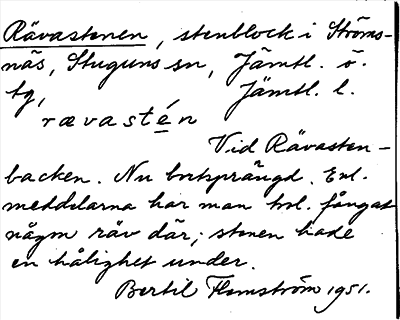 Rävastenen, stenblock i Ströms-
näs, Stuguns sn, Jämtl. ö.
tg, Jämtl. l.
rævastén
Vid Rävasten-
backen. Nu bortsprängd. Enl.
meddelarna har man tol. fångat
någon räv där; stenen hade
en hålighet under.
Bertil Flemström 1951.